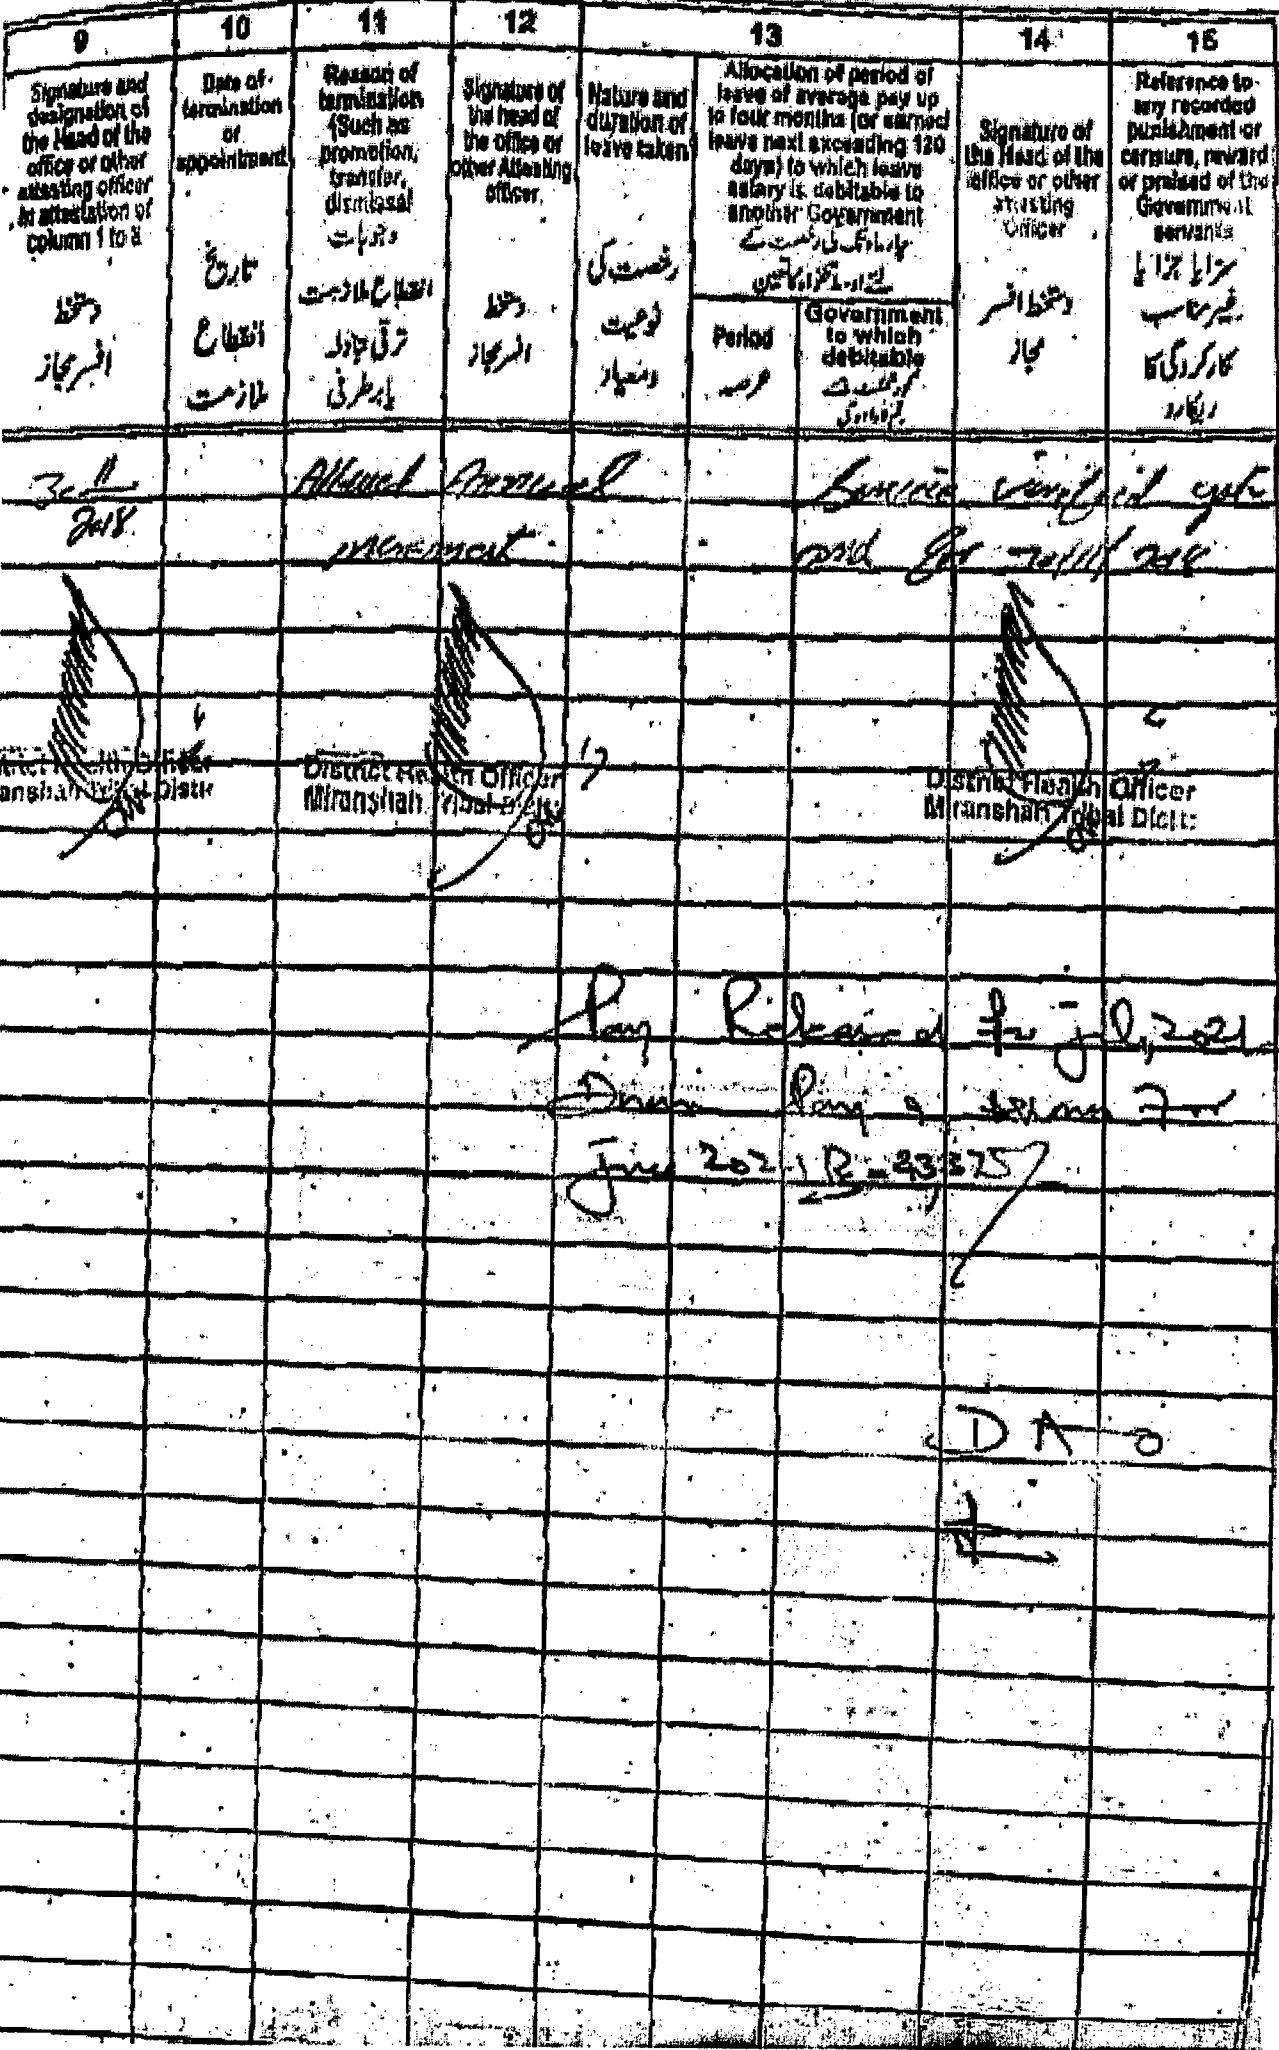 9 10 11 12 13 14 15
Signature and
designation of
the Head of the
office or other
attesting officer
in attestation of
column 1 to 8
دستخط
افسر مجاز
Date of
termination
or
appointment
تاریخ
انقطاع
ملازمت
Reason of
termination
(Such as
promotion,
transfer,
dismissal
وجوہات
انقطاع ملازمت
ترقی تبادلہ
یا برطرفی
Signature of
the head of
the office or
other Attesting
officer.
دستخط
افسر مجاز
Nature and
duration of
leave taken
رخصت کی
نوعیت
ومعیاد
Allocation of period of
leave of average pay up
to four months (or earned
leave next exceeding 120
days) to which leave
salary is debitable to
another Government
Period
عرصہ
Government
to which
debitable
Signature of
the Head of the
office or other
attesting
Officer
دستخط افسر
مجاز
Reference to
any recorded
punishment or
censure, reward
or praised of the
Government
servants
سزا یا جزا یا
غیر مناسب
کارکردگی کا
ریکارڈ
30 11 Allowed Annual Service verified
2018 increment and for 30/11/2018
District Health Officer
Miranshah Tribal Distt:
District Health Officer
Miranshah Tribal Distt:
District Health Officer
Miranshah Tribal Distt:
Pay Released July, 2021
Pay
June 2021
DAO